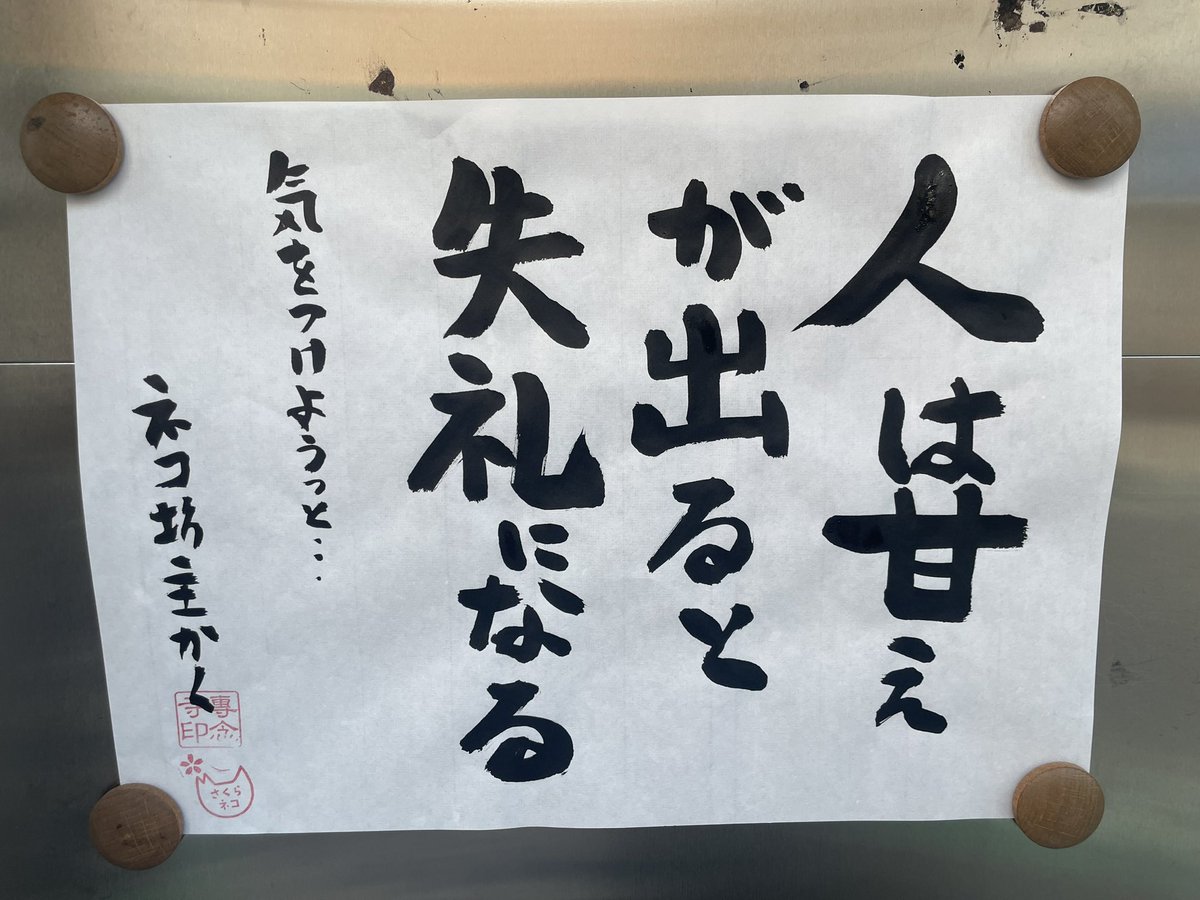 人は甘え
が出ると
失礼になる
気をつけようっと…
ネコ坊主かく
專念
寺印
さくら
ネコ